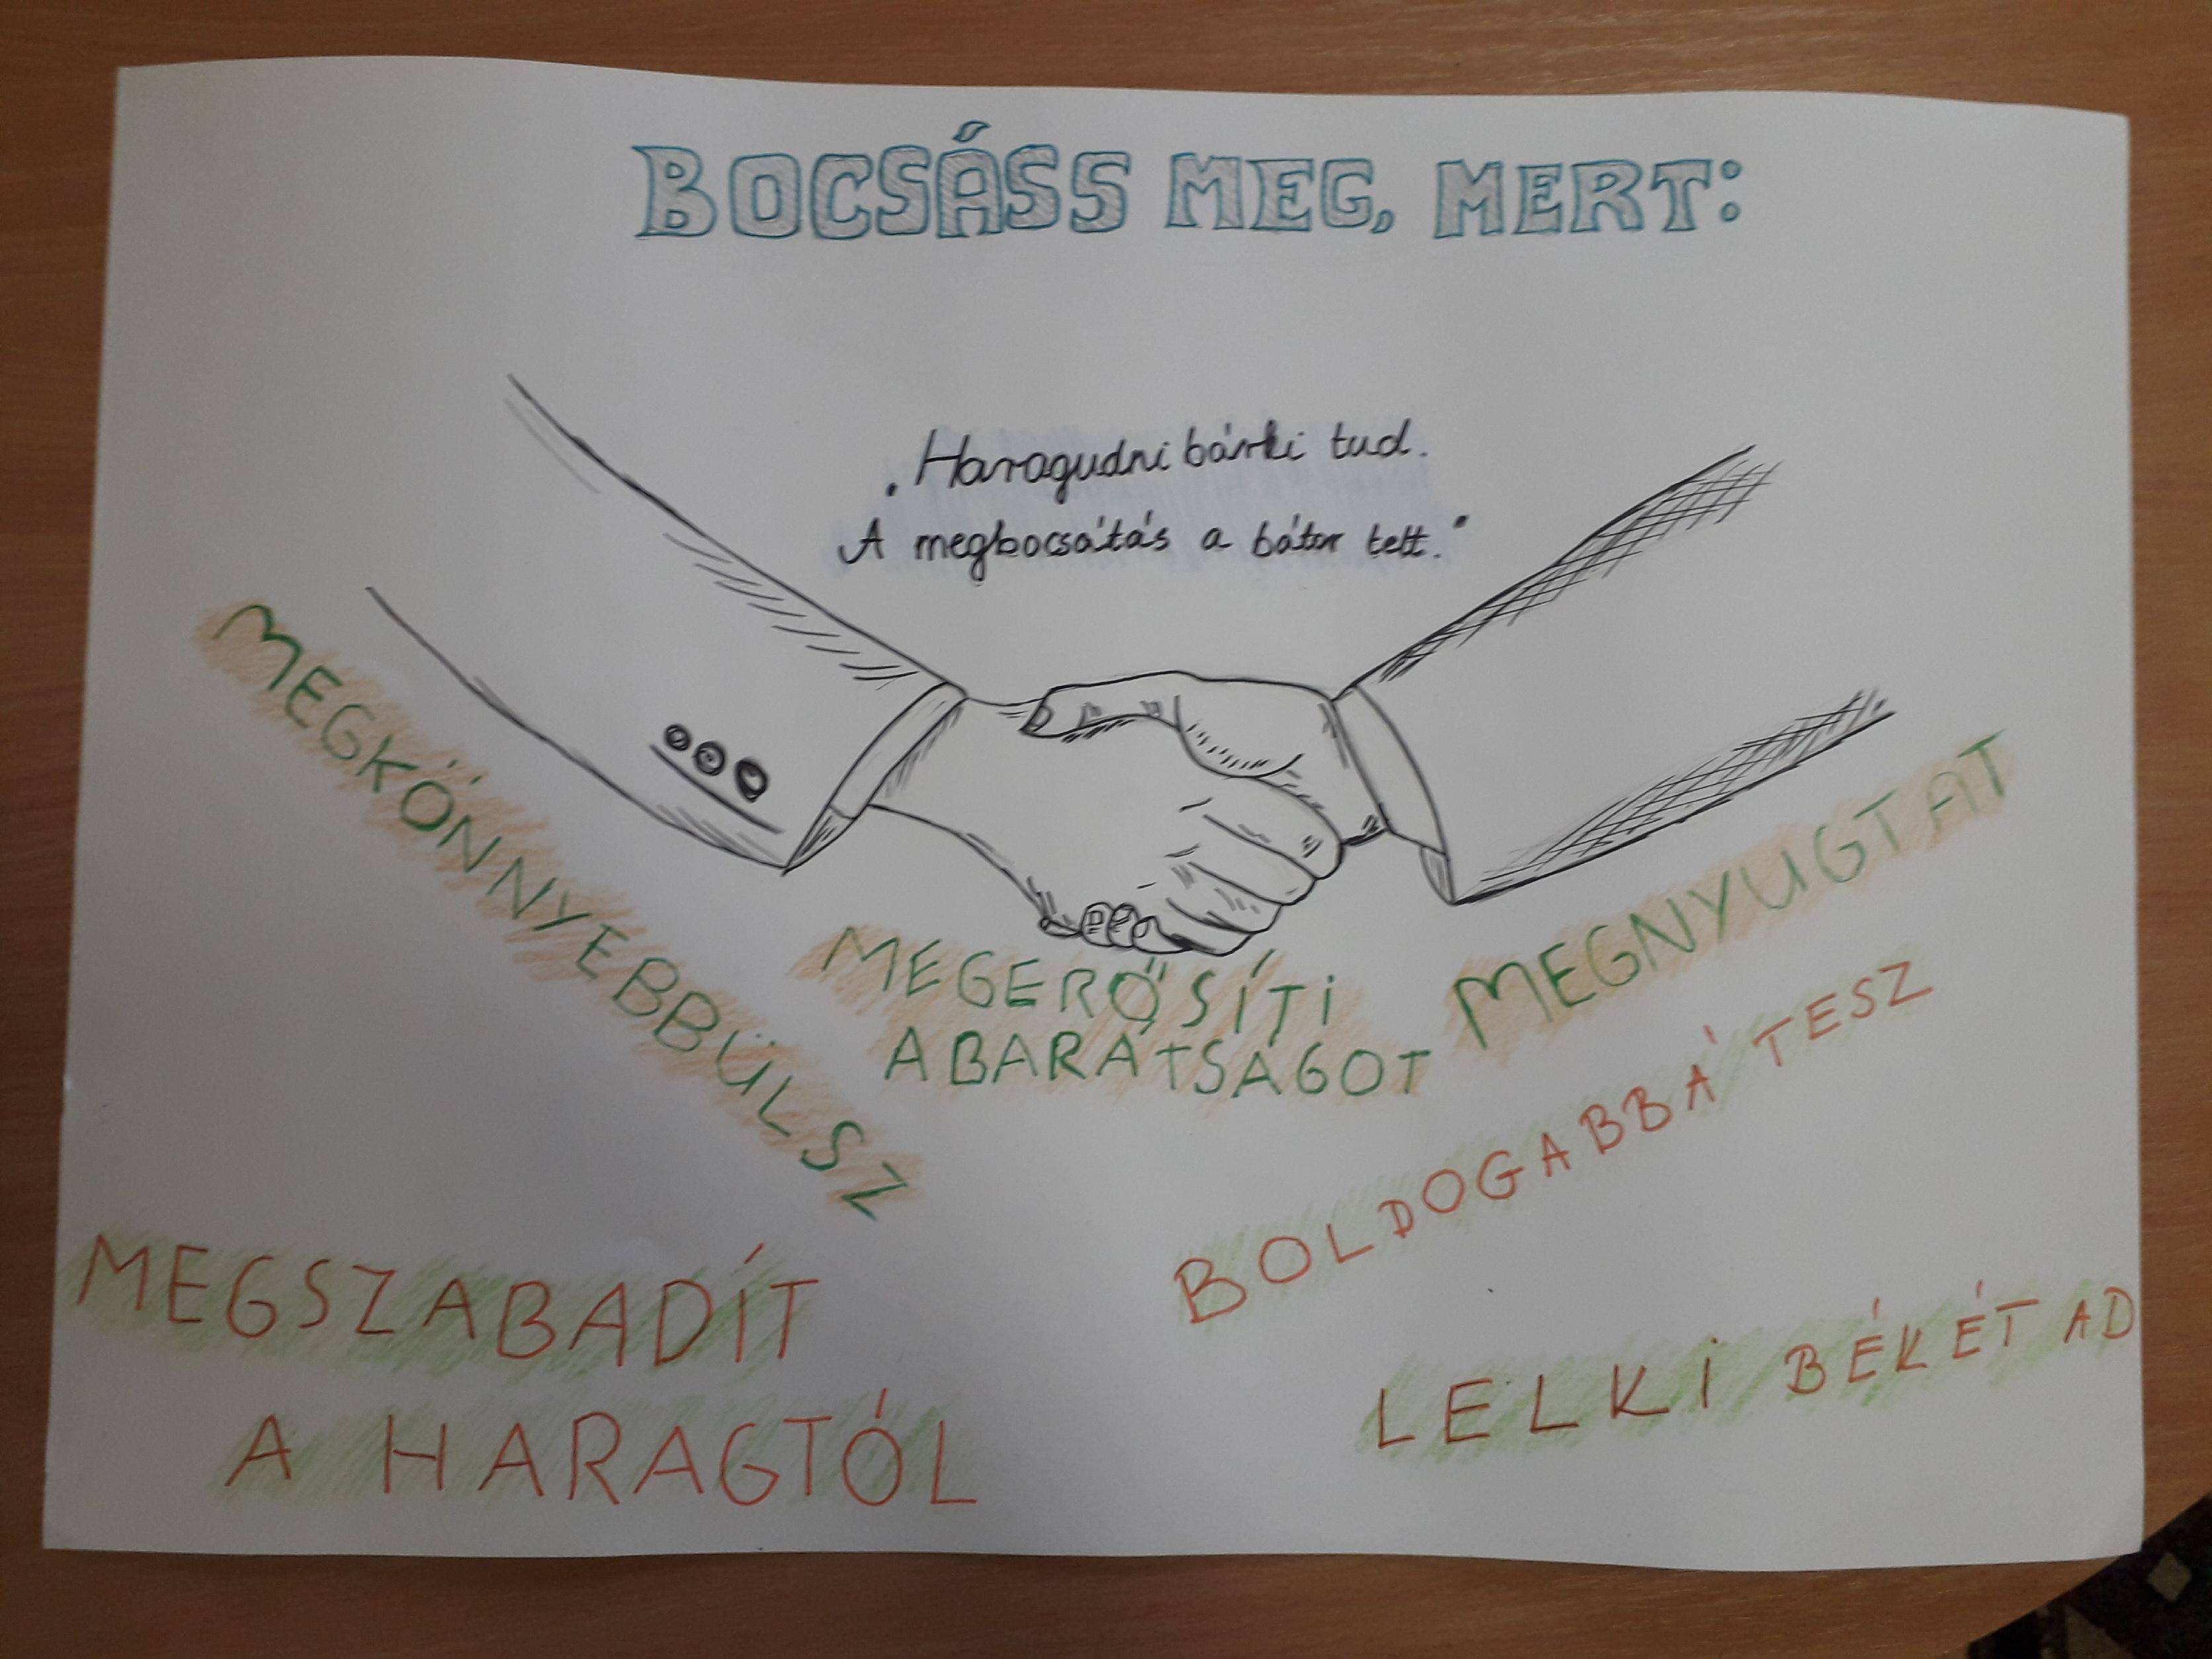 BOCSÁSS MEG, MERT:
„Haragudni bárki tud.
A megbocsátás a bátor tett."
MEGKÖNNYEBBÜLSZ
MEGERŐSÍTI
A BARÁTSÁGOT
MEGNYUGTAT
BOLDOGABBÁ TESZ
MEGSZABADÍT
A HARAGTÓL
LELKI BÉKÉT AD